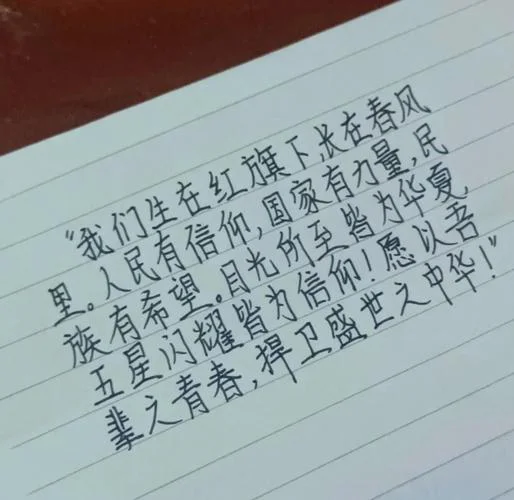 “我们生在红旗下,长在春风
里。人民有信仰,国家有力量,民
族有希望。目光所至皆为华夏
五星闪耀皆为信仰!愿以吾
辈之青春,捍卫盛世之中华!”